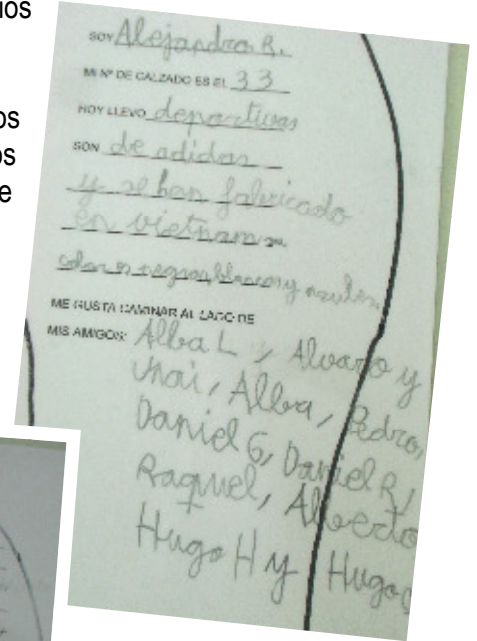 ios
os
os
e
SOY Alejandra R.
MI Nº DE CALZADO ES EL 33
HOY LLEVO deportivas
SON de adidas
y se han fabricado
en vietnam su
color es negros blancos y azules.
ME GUSTA CAMINAR AL LADO DE
MIS AMIGOS: Alba L, Alvaro y
Unai, Alba, Pedro,
Daniel G, Daniel R,
Raquel, Alberto
Hugo H y Hugo